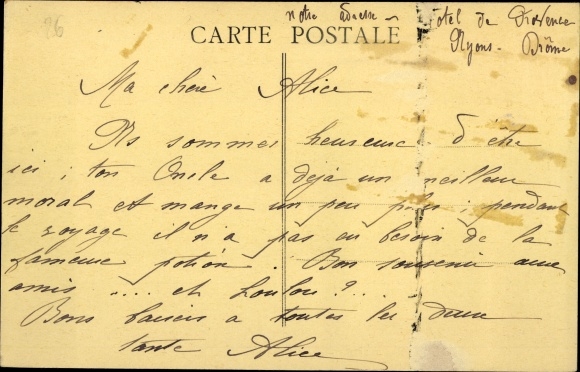 26
notre adresse Hotel de Provence
CARTE POSTALE
Nyons - Drôme
Ma chère Alice
Ns sommes heureuse d'être
ici ; ton Oncle a déjà un meilleur
moral et mange un peu plus ; pendant
le voyage il n'a pas eu besoin de la
fameuse potion. Bon souvenir aux
amis ..... et Loulou ? ...
Bons baisers a toutes les deux
tante Alice